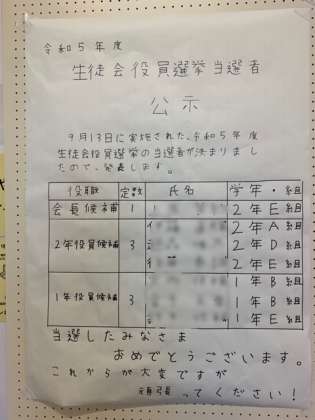 令和5年度
生徒会役員選挙当選者
公示
9月13日に実施された、令和5年度
生徒会役員選挙の当選者が決まりまし
たので、発表します。
役職 定数 氏名 学年・組
会長候補 1 2年E組
2年役員候補 3 2年A組
2年D組
2年E組
1年役員候補 3 1年B組
1年B組
1年E組
当選したみなさま
おめでとうございます。
これからが大変ですが
頑張ってください!